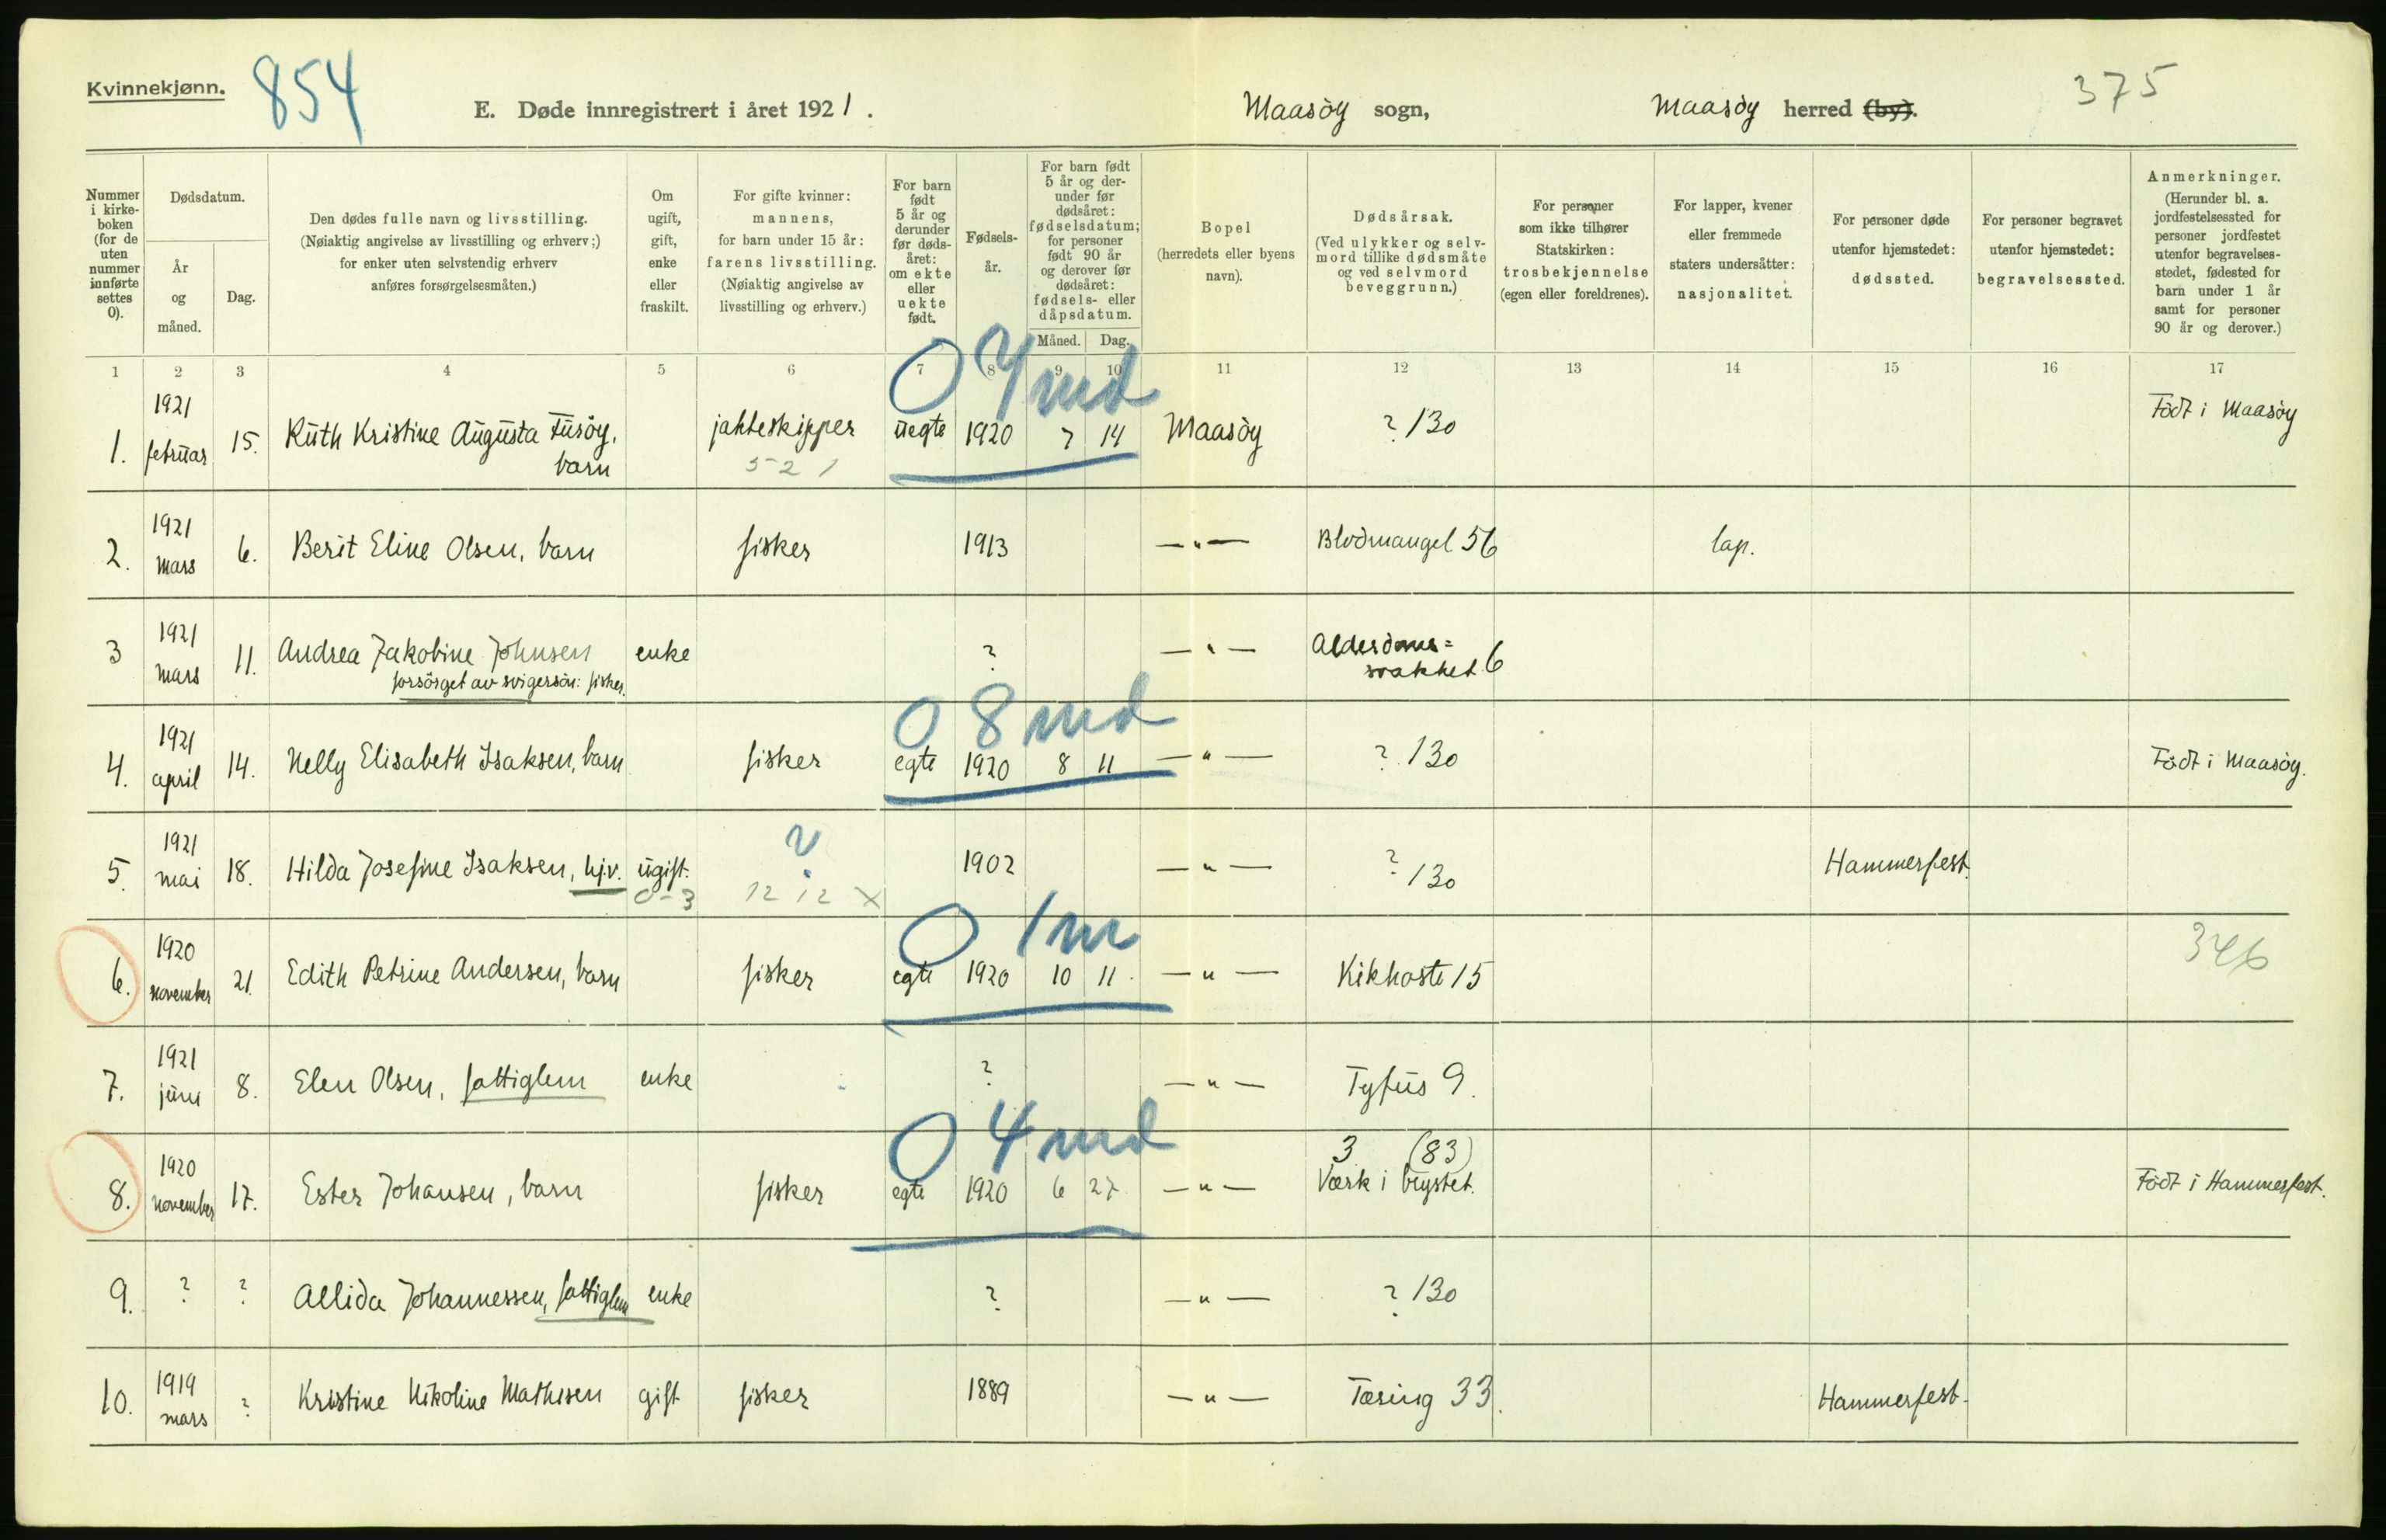 Kvinnekjønn.
854
E. Døde innregistrert i året 1921.
Maasöy sogn,
Maasöy herred (by).
375
Nummer i kirkeboken (for de uten nummer innførte settes 0).
Dødsdatum.
År og måned.
Dag.
Den dødes fulle navn og livsstilling.
(Nøiaktig angivelse av livsstilling og erhverv;)
for enker uten selvstendig erhverv
anføres forsørgelsesmåten.)
Om ugift, gift, enke eller fraskilt.
For gifte kvinner:
mannens,
for barn under 15 år:
farens livsstilling.
(Nøiaktig angivelse av
livsstilling og erhverv.)
For barn født 5 år og derunder før dødsåret: om ekte eller uekte født.
Fødselsår.
For barn født 5 år og derunder før dødsåret: fødselsdatum; for personer født 90 år og derover før dødsåret: fødsels- eller dåpsdatum.
Måned. Dag.
Bopel
(herredets eller byens
navn).
Dødsårsak.
(Ved ulykker og selvmord tillike dødsmåte
og ved selvmord
beveggrunn.)
For personer
som ikke tilhører
Statskirken:
trosbekjennelse
(egen eller foreldrenes).
For lapper, kvener
eller fremmede
staters undersåtter:
nasjonalitet.
For personer døde
utenfor hjemstedet:
dødssted.
For personer begravet
utenfor hjemstedet:
begravelsessted.
Anmerkninger.
(Herunder bl. a.
jordfestelsessted for
personer jordfestet
utenfor begravelsesstedet, fødested for
barn under 1 år
samt for personer
90 år og derover.)
1 2 3 4 5 6 7 8 9 10 11 12 13 14 15 16 17
0 7 md
1. 1921 februar 15. Ruth Kristine Augusta Fusöy, barn jakteskipper uegte 1920 7 14 Maasöy ? 130 Född i Maasöy
5 2 1
2. 1921 mars 6. Berit Eline Olsen, barn fisker 1913 —"— Blodmangel 56 lap.
3 1921 mars 11. Andrea Jakobine Johnsen enke ? —"— Alderdoms=
forsörget av svigersön: fisker. svakhet 6
0 8 md
4. 1921 april 14. Nelly Elisabeth Isaksen, barn fisker egte 1920 8 11 —"— ? 130 Född i Maasöy.
5. 1921 mai 18. Hilda Josefine Isaksen, hjv. ugift. ? 1902 —"— ? 130 Hammerfest.
0-3 12 12 X
0 1 m
6. 1920 november 21. Edith Petrine Andersen, barn fisker egte 1920 10 11 —"— Kikhoste 15 346
7. 1921 juni 8. Elen Olsen, fattiglem enke ? —"— Tyfus 9.
0 4 md
3 (83)
8. 1920 november 17. Ester Johansen, barn fisker egte 1920 6 27 —"— Værk i brystet. Född i Hammerfest.
9. ? ? Allida Johannessen, fattiglem enke ? —"— ? 130
10. 1919 mars ? Kristine Nikoline Mathisen gift fisker 1889 —"— Tæring 33. Hammerfest.